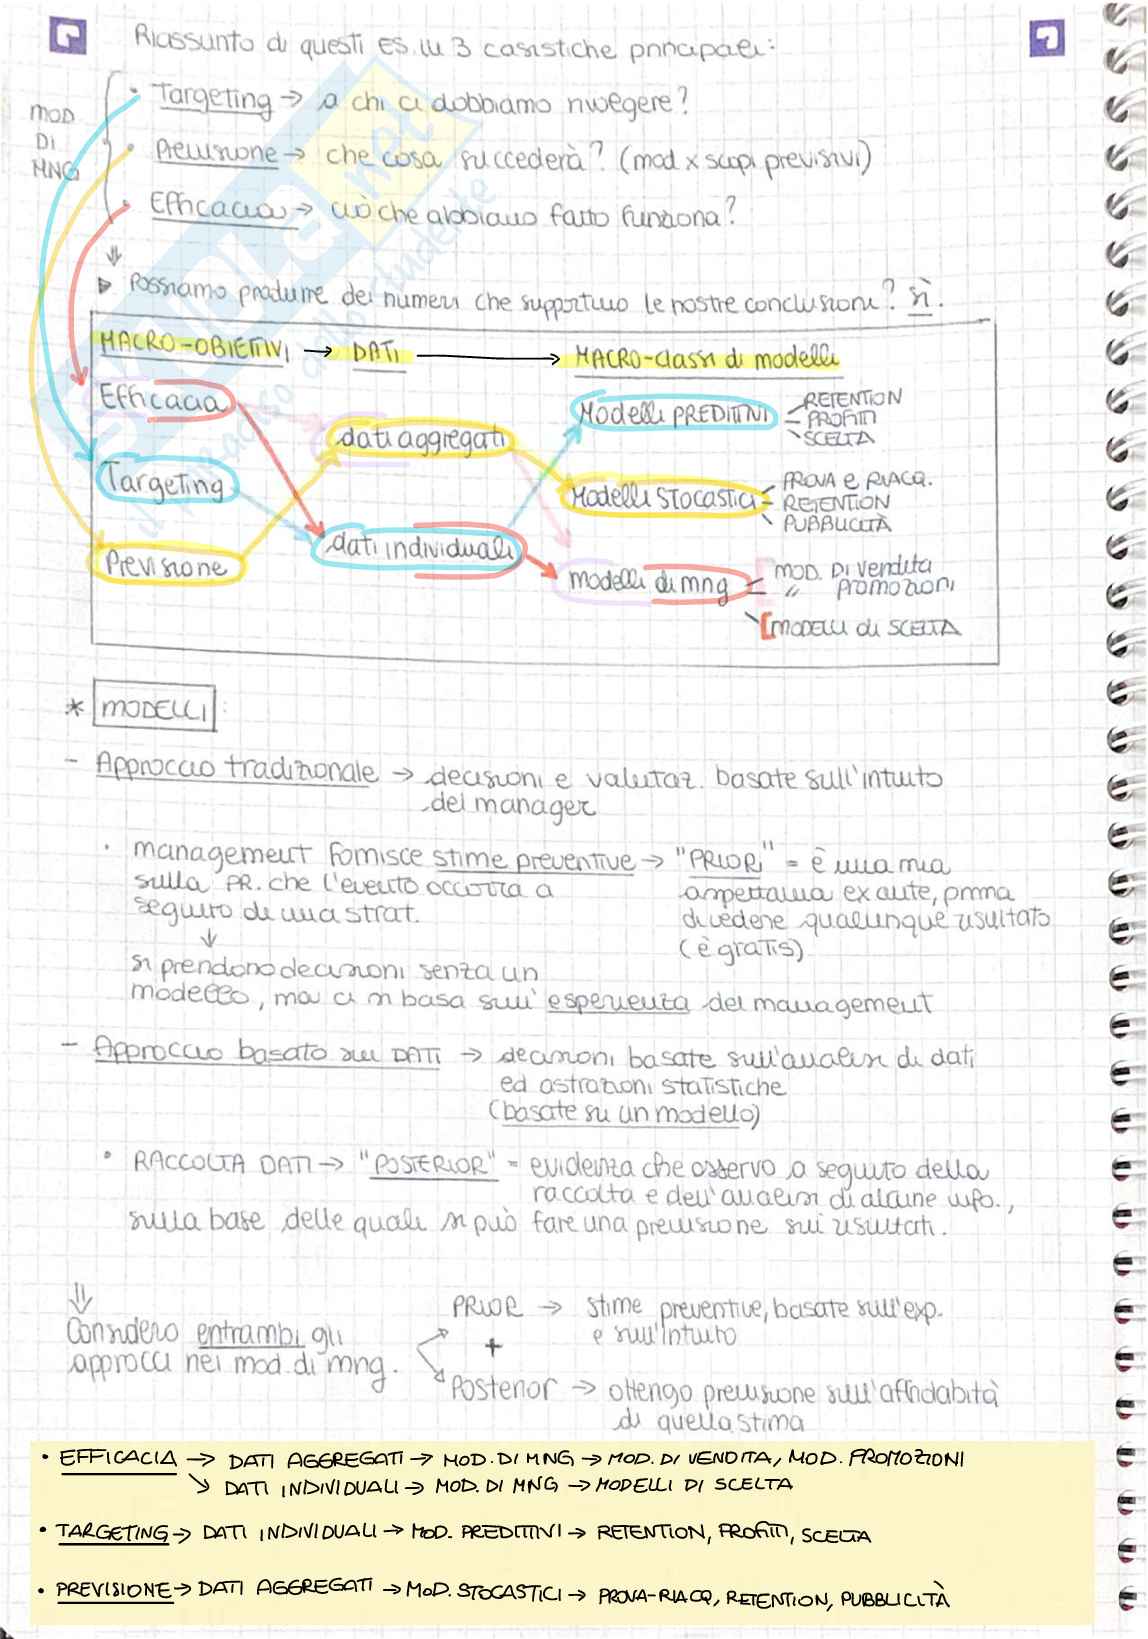 Riassunto di questi es. in 3 casistiche principali:
MOD DI MNG
• Targeting → a chi ci dobbiamo rivolgere?
• Previsione → che cosa succederà? (mod x scopi previsivi)
• Efficacia → ciò che abbiamo fatto funziona?
⇓
▸ Possiamo produrre dei numeri che supportino le nostre conclusioni? sì.
MACRO-OBIETTIVI → DATI → MACRO-classi di modelli
Efficacia
Targeting
Previsione
dati aggregati
dati individuali
Modelli PREDITTIVI
RETENTION
PROFITTI
SCELTA
Modelli STOCASTICI
PROVA e RIACQ.
RETENTION
PUBBLICITÀ
modelli di mng
MOD. DI vendita
" PROMOZIONI
MODELLI di SCELTA
* MODELLI:
- Approccio tradizionale → decisioni e valutaz. basate sull'intuito
del manager
• management fornisce stime preventive → "PRIORI" = è una mia
sulla PR. che l'evento occorra a aspettativa ex ante, prima
seguito di una strat. di vedere qualunque risultato
↓ (è gratis).
si prendono decisioni senza un
modello, ma ci si basa sull'esperienza del management
- Approccio basato sui DATI → decisioni basate sull'analisi di dati
ed astrazioni statistiche
(basate su un modello)
• RACCOLTA DATI → "POSTERIOR" = evidenza che osservo a seguito della
raccolta e dell'analisi di alcune info.,
sulla base delle quali si può fare una previsione sui risultati.
⇓
Considero entrambi gli
approcci nei mod. di mng.
PRIOR → stime preventive, basate sull'exp.
e sull'intuito
+
Posterior → ottengo previsione sull'affidabilità
di quella stima
• EFFICACIA → DATI AGGREGATI → MOD. DI MNG → MOD. DI VENDITA, MOD. PROMOZIONI
↘ DATI INDIVIDUALI → MOD. DI MNG → MODELLI DI SCELTA
• TARGETING → DATI INDIVIDUALI → MOD. PREDITTIVI → RETENTION, PROFITTI, SCELTA
• PREVISIONE → DATI AGGREGATI → MOD. STOCASTICI → PROVA-RIACQ, RETENTION, PUBBLICITÀ